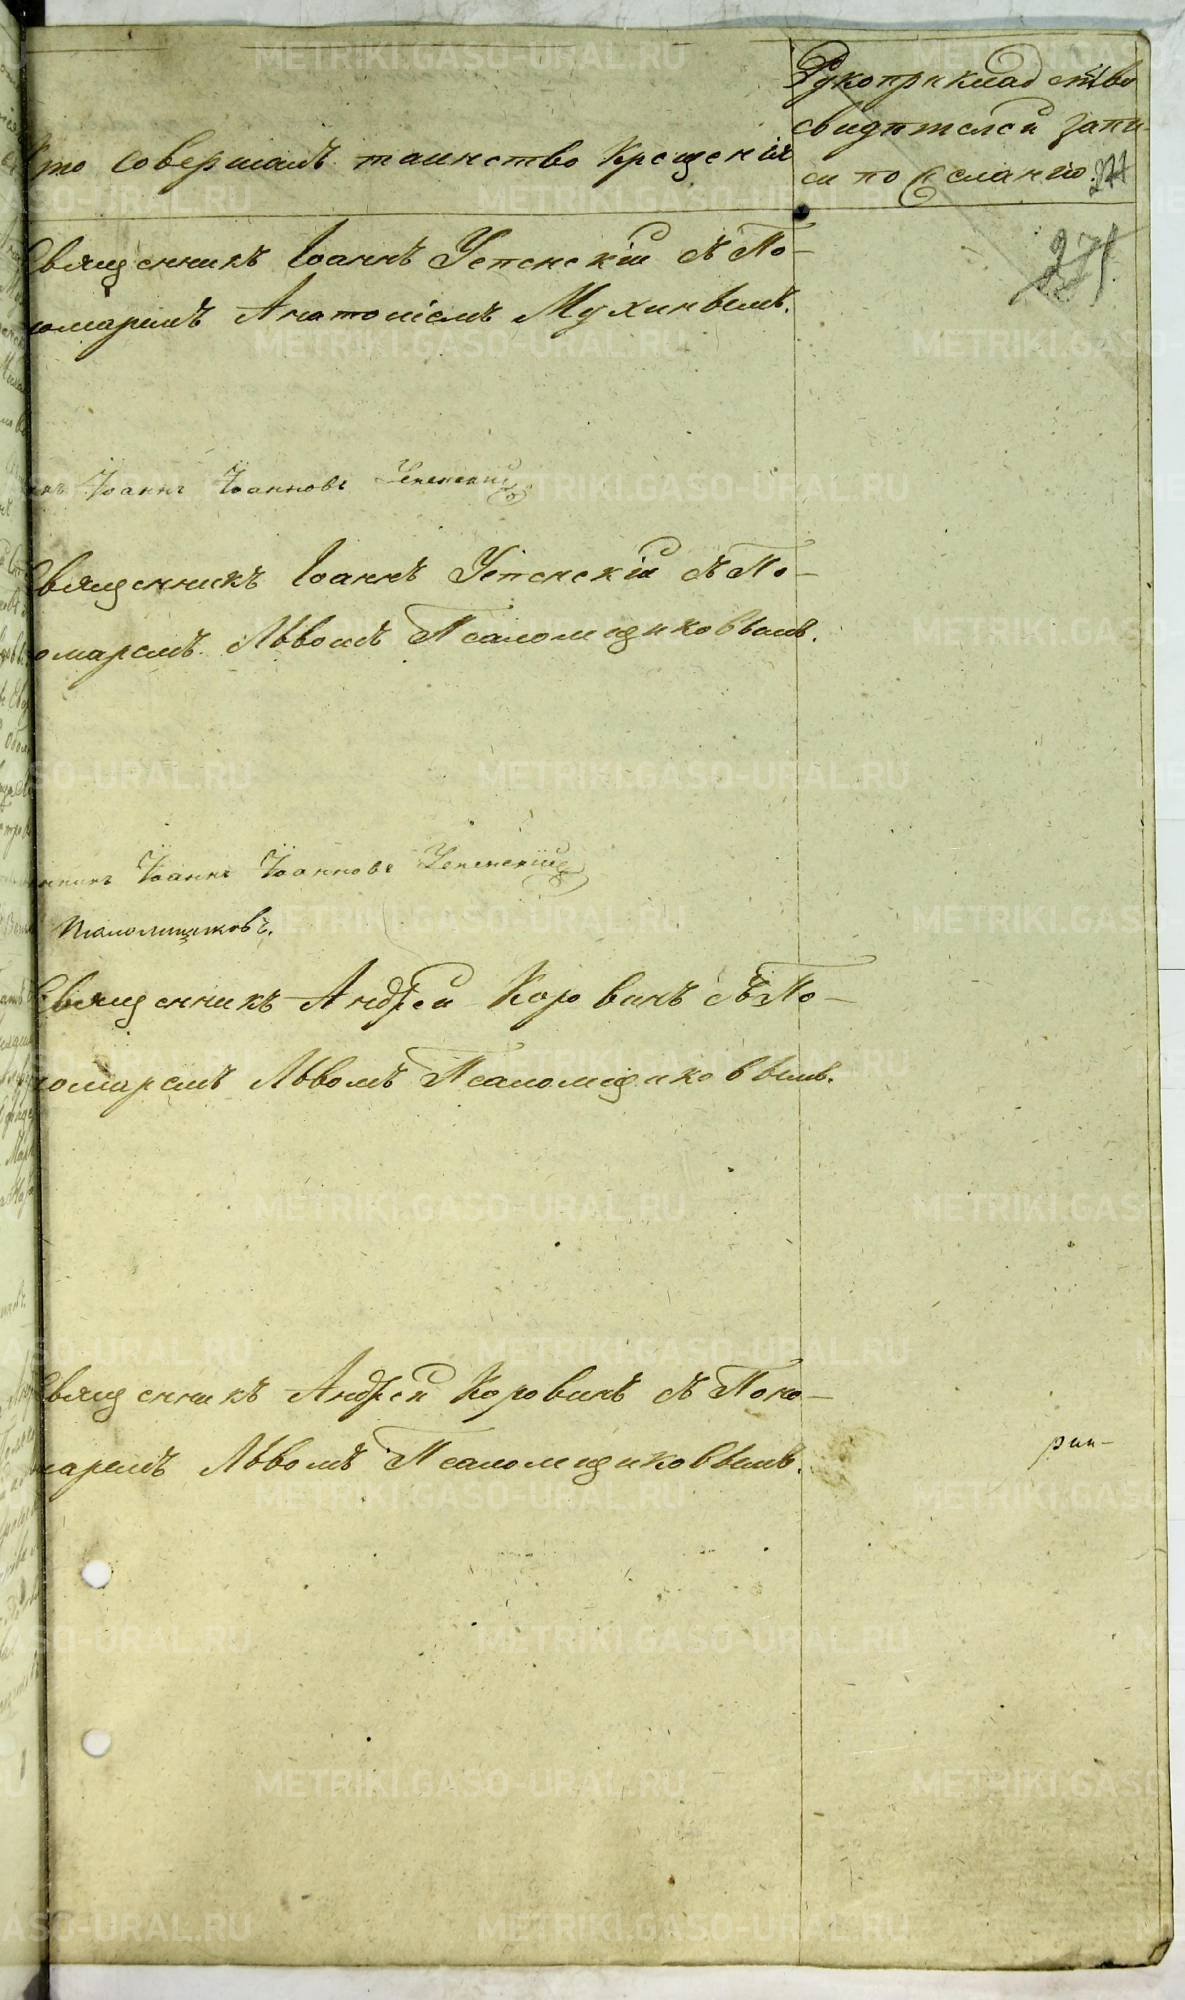 Кто совершалъ таинство крещенія
Рукоприкладство
свидѣтелей запи-
си по желанію.
Священникъ Іоаннъ Успенскій съ По-
номаремъ Анатоліемъ Мухинымъ.
Іоаннъ Іоанновъ Успенскій
Священникъ Іоаннъ Успенскій съ По-
номаремъ Львомъ Псаломщиковымъ.
Іоаннъ Іоанновъ Успенскій
Псаломщиковъ.
Священникъ Андрей Коровинъ съ По-
номаремъ Львомъ Псаломщиковымъ.
Священникъ Андрей Коровинъ съ Поно-
маремъ Львомъ Псаломщиковымъ.
METRIKI.GASO-URAL.RU